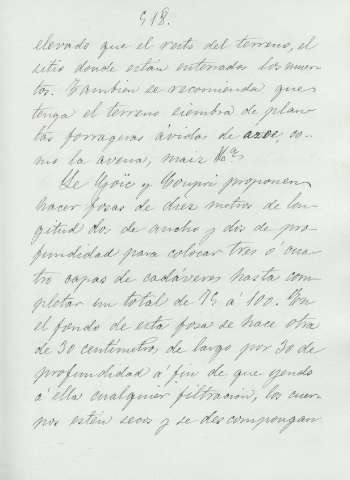 518.
elevado que el resto del terreno, el
sitio donde están enterrados los muer-
tos. Tambien se recomienda que
tenga el terreno siembra de plan-
tas forrageras ávidas de azoe, co-
mo la avena, maiz &ª
Le Goïc y Coupri proponen
hacer fosas de diez metros de lon-
gitud dos de ancho y dos de pro-
fundidad para colocar tres ó cua-
tro capas de cadáveres hasta com-
pletar un total de 75 á 100. En
el fondo de esta fosa se hace otra
de 30 centímetros de largo por 30 de
profundidad á fin de que yendo
á ella cualquier filtración, los cuer-
pos estén secos y se descompongan